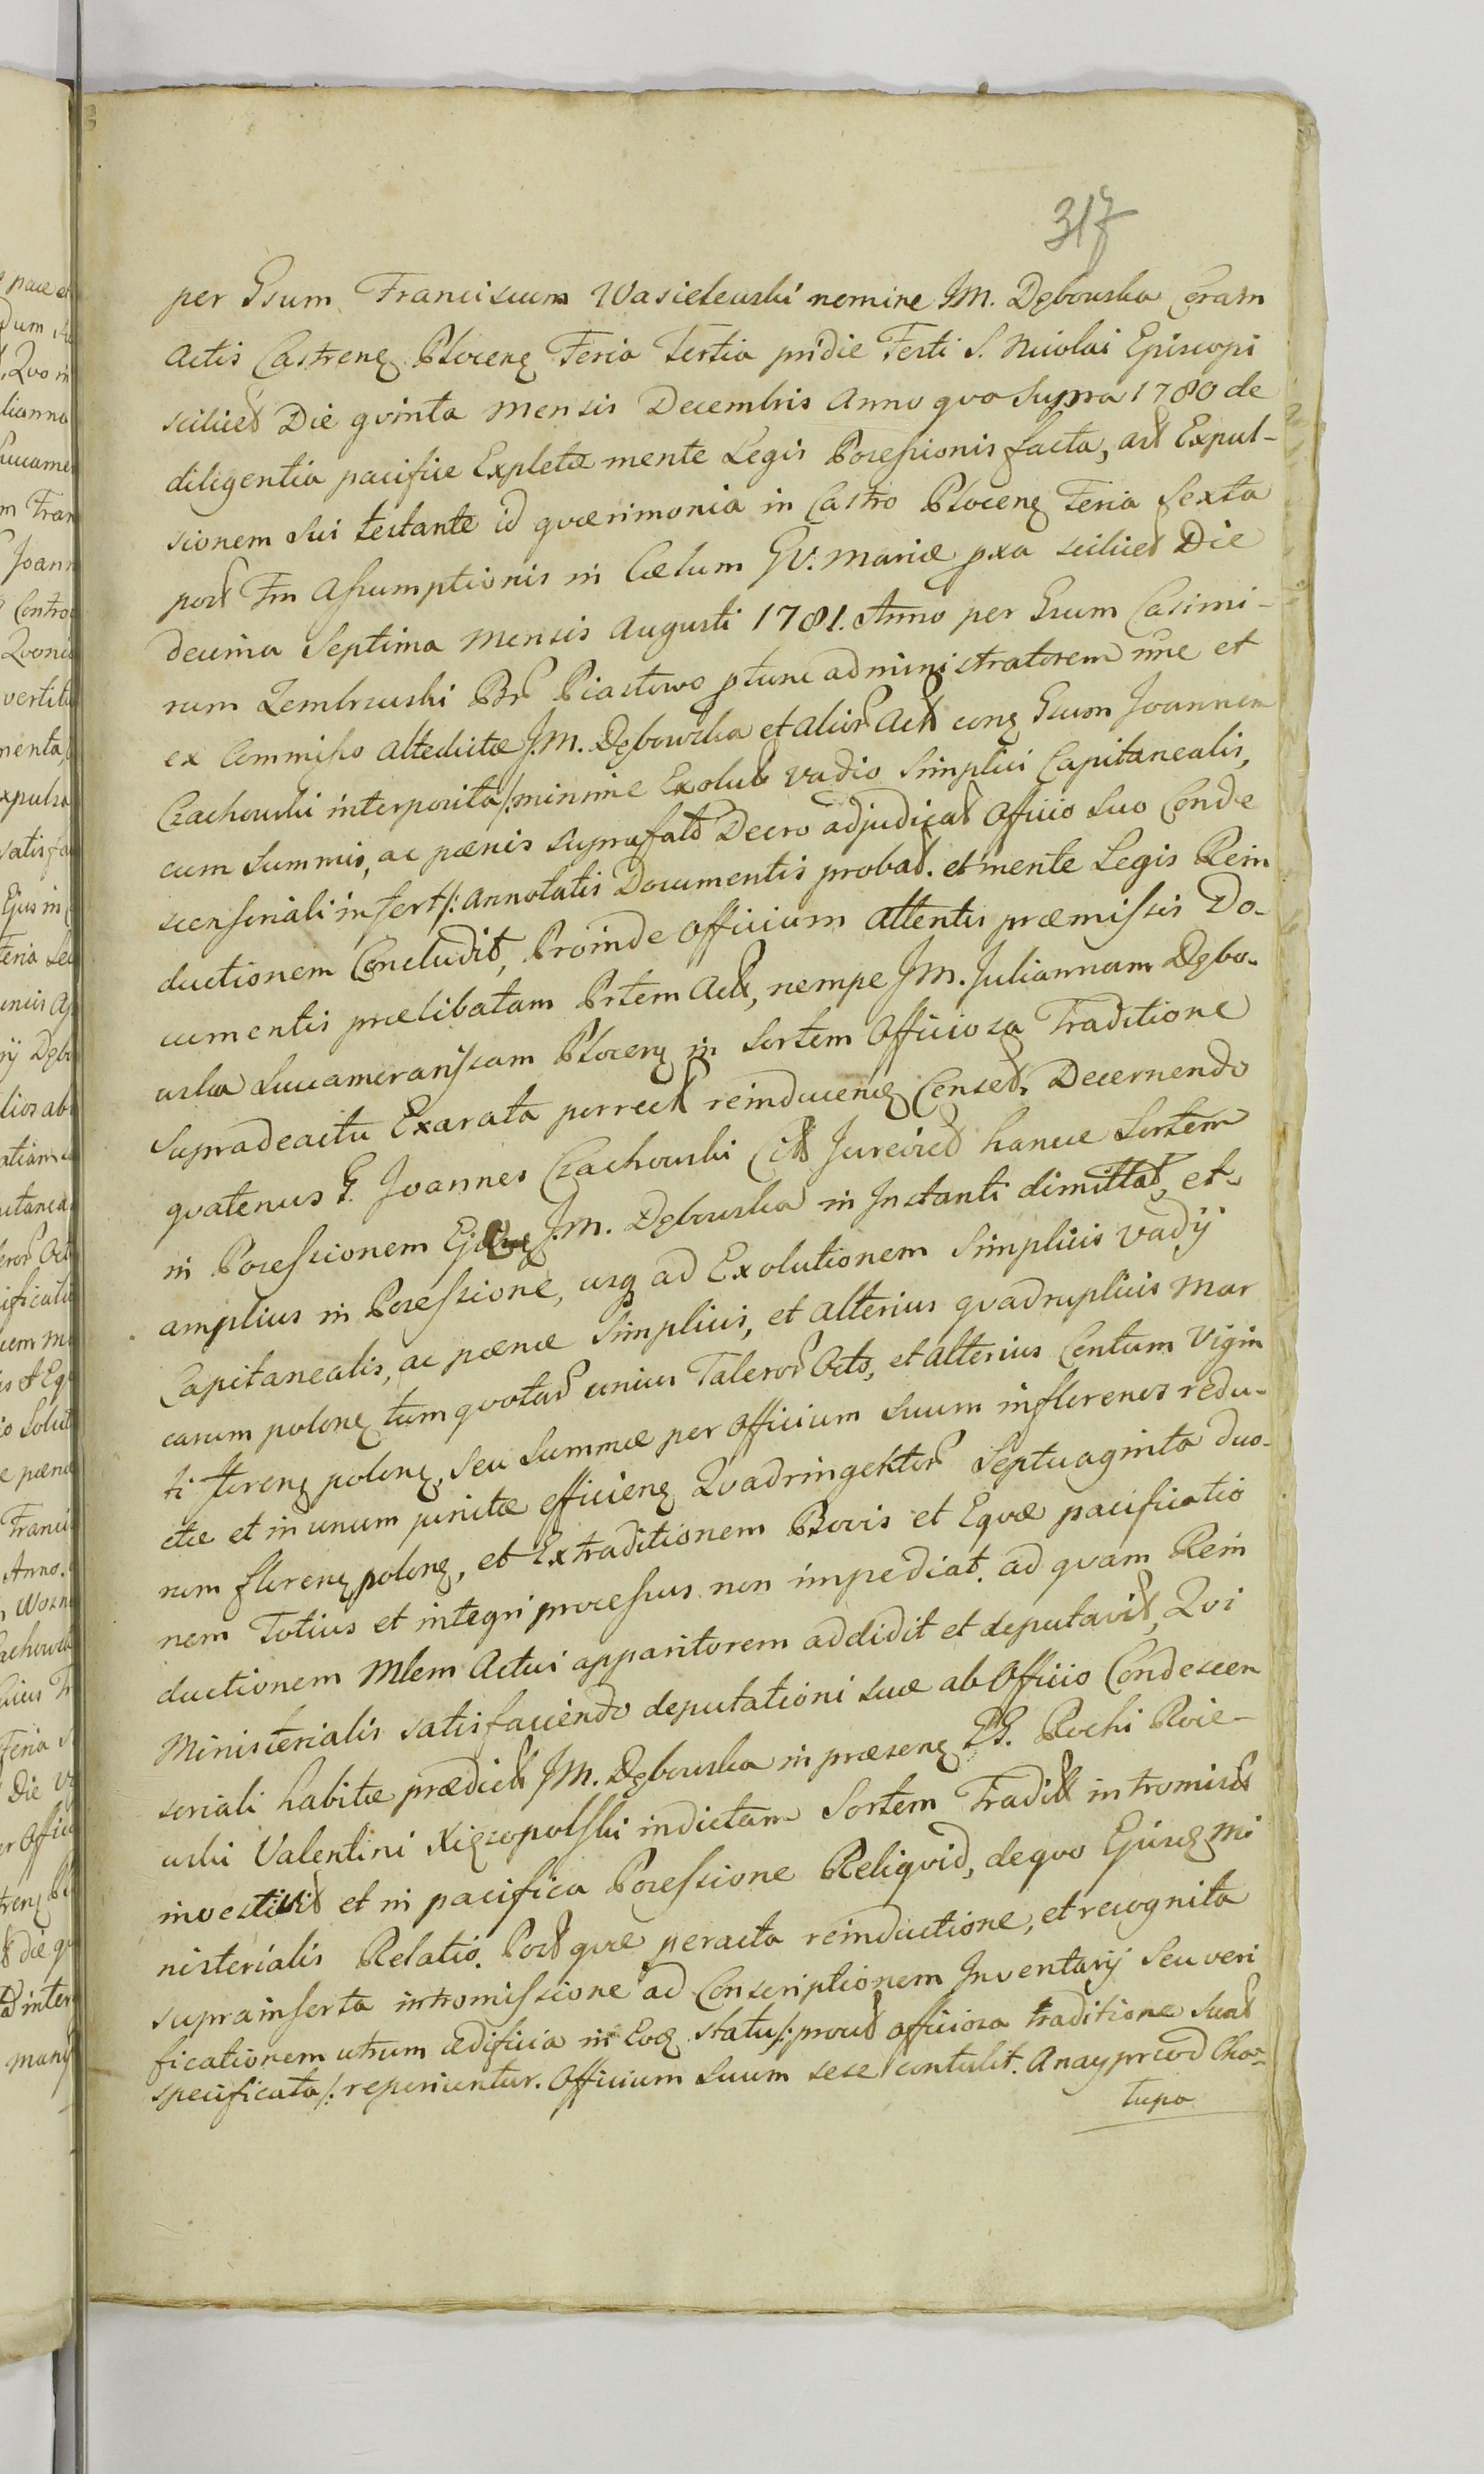 317
per Gsum Franciscum Wasielewski nomine JM. Dębowska Coram
Actis Castren Plocen Feria Tertia pridie Festi S. Nicolai Episcopi
scilicet Die qvinta Mensis Decembris Anno qvo Supra 1780 de
diligentia pacifice Expletæ mente Legis Possessionis facta, ast Expul-
sionem Sui testante id qværimonia in Castro Plocen Feria Sexta
post Fm Assumptionis in Cælum GV: Mariæ pxa scilicet Die
decima Septima Mensis Augusti 1781. Anno per Gsum Casimi-
rum Zembrzuski Br Piastowo ptunc administratorem une et
ex Commisso altedictæ J.M. Dębowska et alior Act cong Gsum Joannem
Czachowski interposita/: minime Exolut vadio Simplici Capitanealis,
cum Summis, ac pænis suprafato Decro adjudicat Officio Suo Conde
scensoriali insert/: annotatis Documentis probat. et mente Legis Rein
ductionem Concludit, Proinde Officium attentis præmissis Do-
cumentis prælibatam Prtem Act, nempe JM. Juliannam Dębo-
wska Succamerariscam Plocen in Sortem Officiosa Traditione
Supradeactu Exarata porrect reinducend Censet, Decernendo
qvatenus G. Joannes Czachowski Citt Jurevict hance Sortem
in Possessionem J.M. Dębowska in Instanti dimittat, et
amplius in Possessione, usq ad Exolutionem Simplicis vadij
Capitanealis, ac pænæ Simplicis, et alterius qvadruplicis Mar
carum polon tum qvotar unius Taleror Octo, et alterius Centum Vigin
ti floren polon, Seu Summæ per Officium Suum in florenos redu-
ctæ et in unum junctæ efficien Qvadringentor Septuaginta duo-
rum floren polon, et Extraditionem Bovis et Eqvæ pacificatio
nem Totius et integri processus non impediat. ad qvam Rein
ductionem Mlem Actui apparitorem addidit et deputavit, Qvi
Ministerialis satisfaciendo deputationi suæ ab Officio Condescen
soriali habitæ prædict JM. Dębowska in præsen GG. Rochi Roie-
wski Valentini Xięzopolski indictam Sortem Tradit intromisit
investivit et in pacifica Possessione Reliqvid, deqvo Ejusd Mi
nisterialis Relatio. Post qvæ peracta reinductione, et recognita
suprainserta intromissione ad Conscriptionem Inventarij Seu veri
ficationem utrum ædificia in Eod statu/: prout officiosa traditione Sunt
specificata/: reperiuntur. Officium Suum sese contulit. A naypreod Cha-
łupa